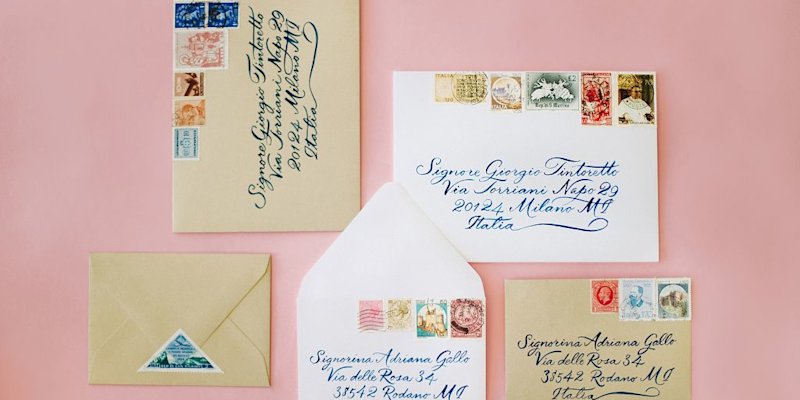 Signore Giorgio Tintoretto
Via Torriani Napo 29
20124 Milano MI
Italia
ITALIA
£2
Rep. di S. Marino
Signore Giorgio Tintoretto
Via Torriani Napo 29
20124 Milano MI
Italia
Signorina Adriana Gallo
Via delle Rosa 34
38542 Rodano MI
Signorina Adriana Gallo
Via delle Rosa 34
38542 Rodano MI
Italia